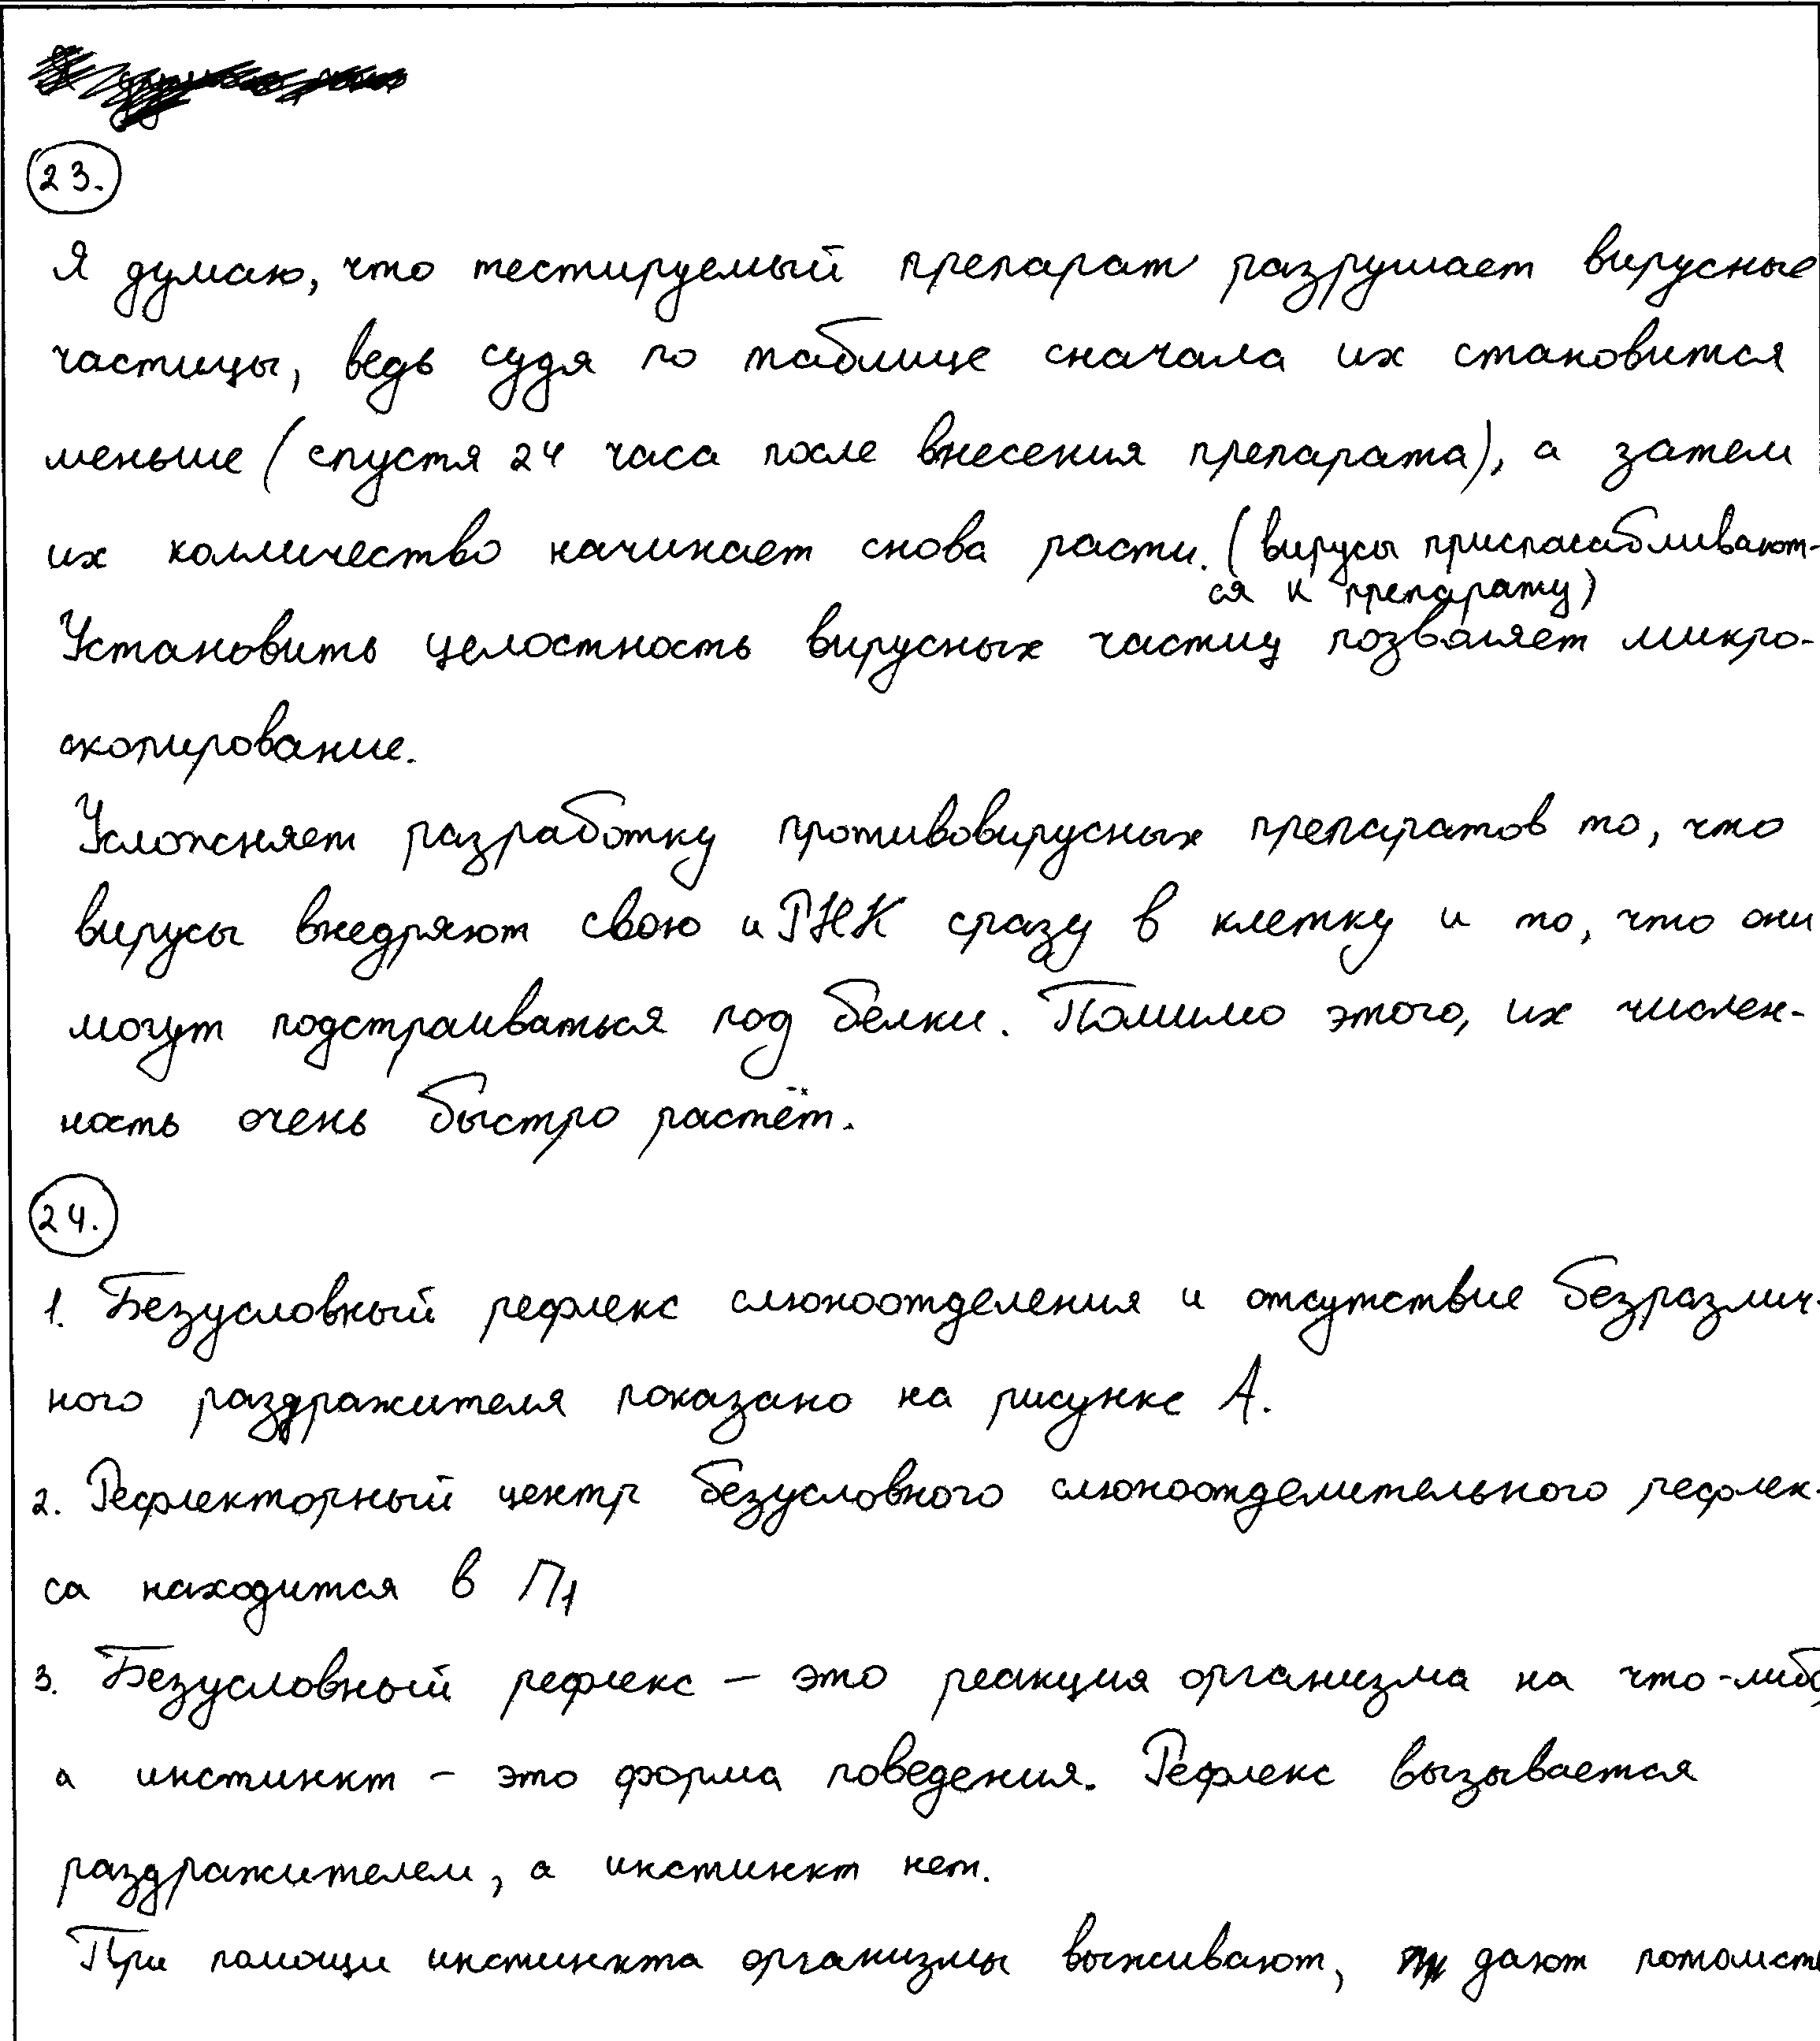 23.
Я думаю, что тестируемый препарат разрушает вирусные
частицы, ведь судя по таблице сначала их становится
меньше (спустя 24 часа после внесения препарата), а затем
их колличество начинает снова расти. (вирусы приспасабливают-
ся к препарату)
Установить целостность вирусных частиц позволяет микро-
скопирование.
Усложняет разработку противовирусных препаратов то, что
вирусы внедряют свою иРНК сразу в клетку и то, что они
могут подстраиваться под белки. Помимо этого, их числен-
ность очень быстро растёт.
24.
1. Безусловный рефлекс слюноотделения и отсутствие безразлич-
ного раздражителя показано на рисунке А.
2. Рефлекторный центр безусловного слюноотделительного рефлек-
са находится в П1
3. Безусловный рефлекс – это реакция организма на что-либо,
а инстинкт – это форма поведения. Рефлекс вызывается
раздражителем, а инстинкт нет.
При помощи инстинкта организмы выживают, дают потомст